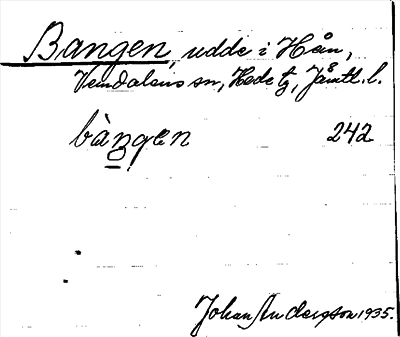 Bangen, udde i Hån,
Vemdalens sn, Hede tg, Jämtl. l.
bàngen 242
Johan Anderson 1935.